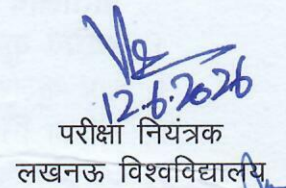 12.6.2026
परीक्षा नियंत्रक
लखनऊ विश्वविद्यालय